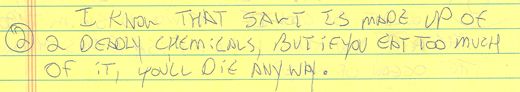 I KNOW THAT SALT IS MADE UP OF
② 2 DEADLY CHEMICALS, BUT IF YOU EAT TOO MUCH
OF IT, YOU'LL DIE ANYWAY.